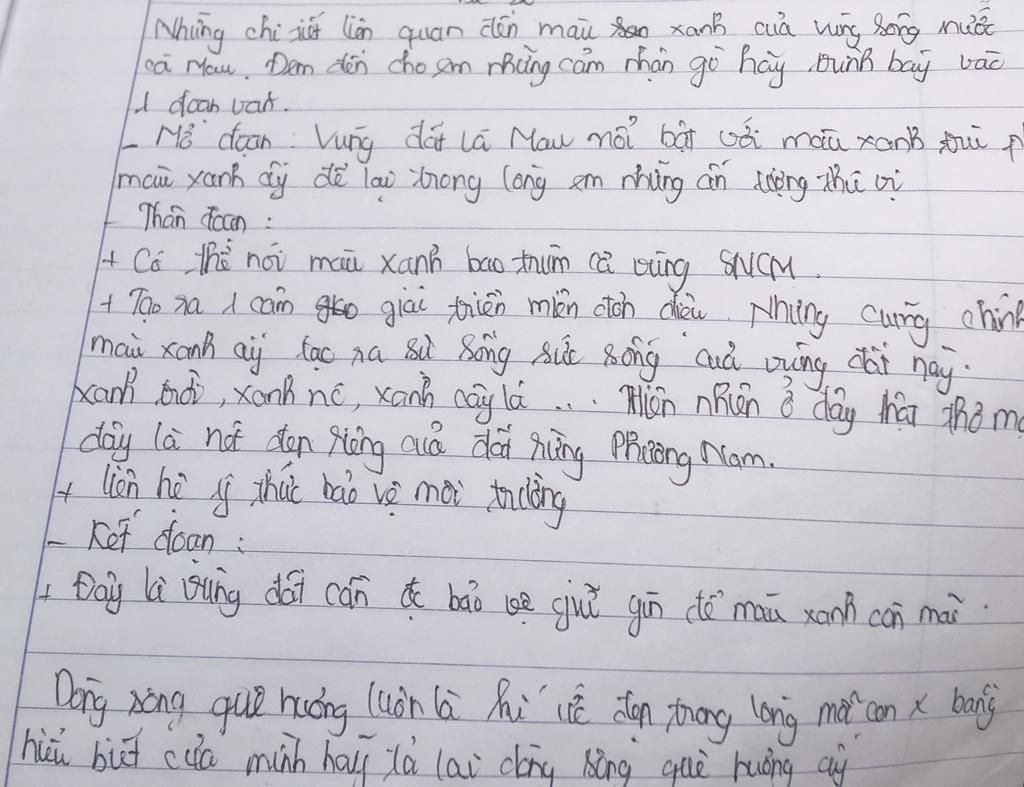 Những chi tiết liên quan đến màu xanh của vùng sông nước
cà Mau. Đem đến cho em những cảm nhận gì hãy trình bày vào
1 đoạn văn.
- Mở đoạn: Vùng đất Cà Mau nổi bật với màu xanh trù
màu xanh ấy để lại trong lòng em những ấn tượng thú vị
- Thân đoạn:
+ Có thể nói màu xanh bao trùm cả vùng SNCM.
+ Tạo ra 1 cảm giác triền miên đơn điệu. Nhưng cũng chính
màu xanh ấy tạc ra sự sống sức sống của vùng đất này.
xanh trời, xanh nc, xanh cây lá ... thiên nhiên ở đây thật thơ
đây là nét đẹp riêng của đất rừng Phương Nam.
+ liên hệ ý thức bảo vệ môi trường
- Kết đoạn:
+ Đây là vùng đất cần đc bảo vệ giữ gìn để màu xanh còn mãi.
Dòng sông quê hương luôn là kí ức đẹp trong lòng mỗi con x bằng
hiểu biết của mình hãy tả lại dòng sông quê hương ấy